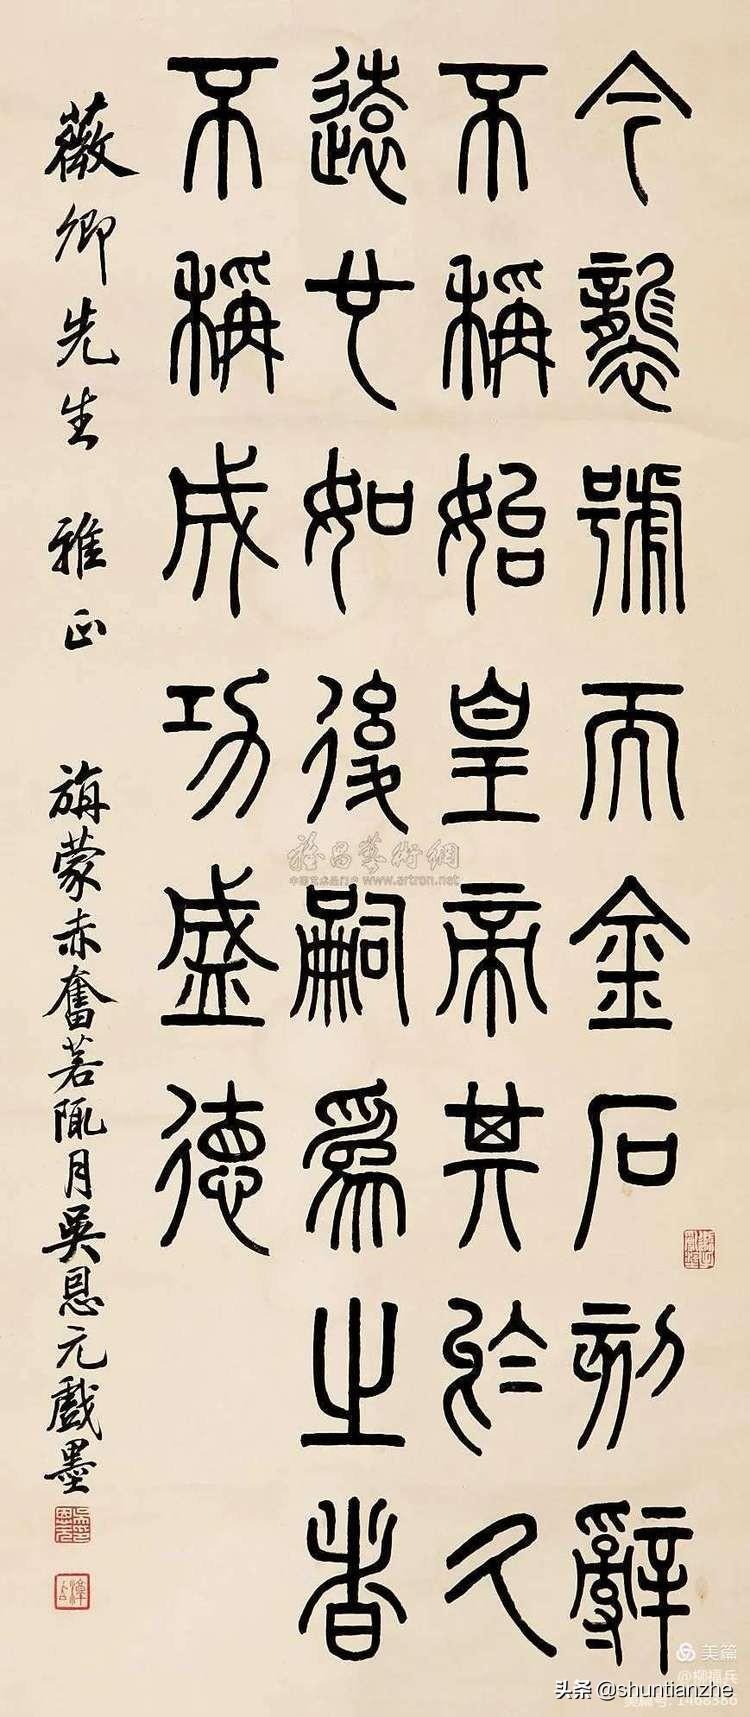 今襲號而金石刻辭
不稱始皇帝其於久
遠也如後嗣爲之者
不稱成功盛德
薇卿先生 雅正 旃蒙赤奮若陬月吳恩元戲墨
雅昌藝術網
中国艺术品门户 www.artron.net
美篇
@柳福兵
头条 @shuntianzhe